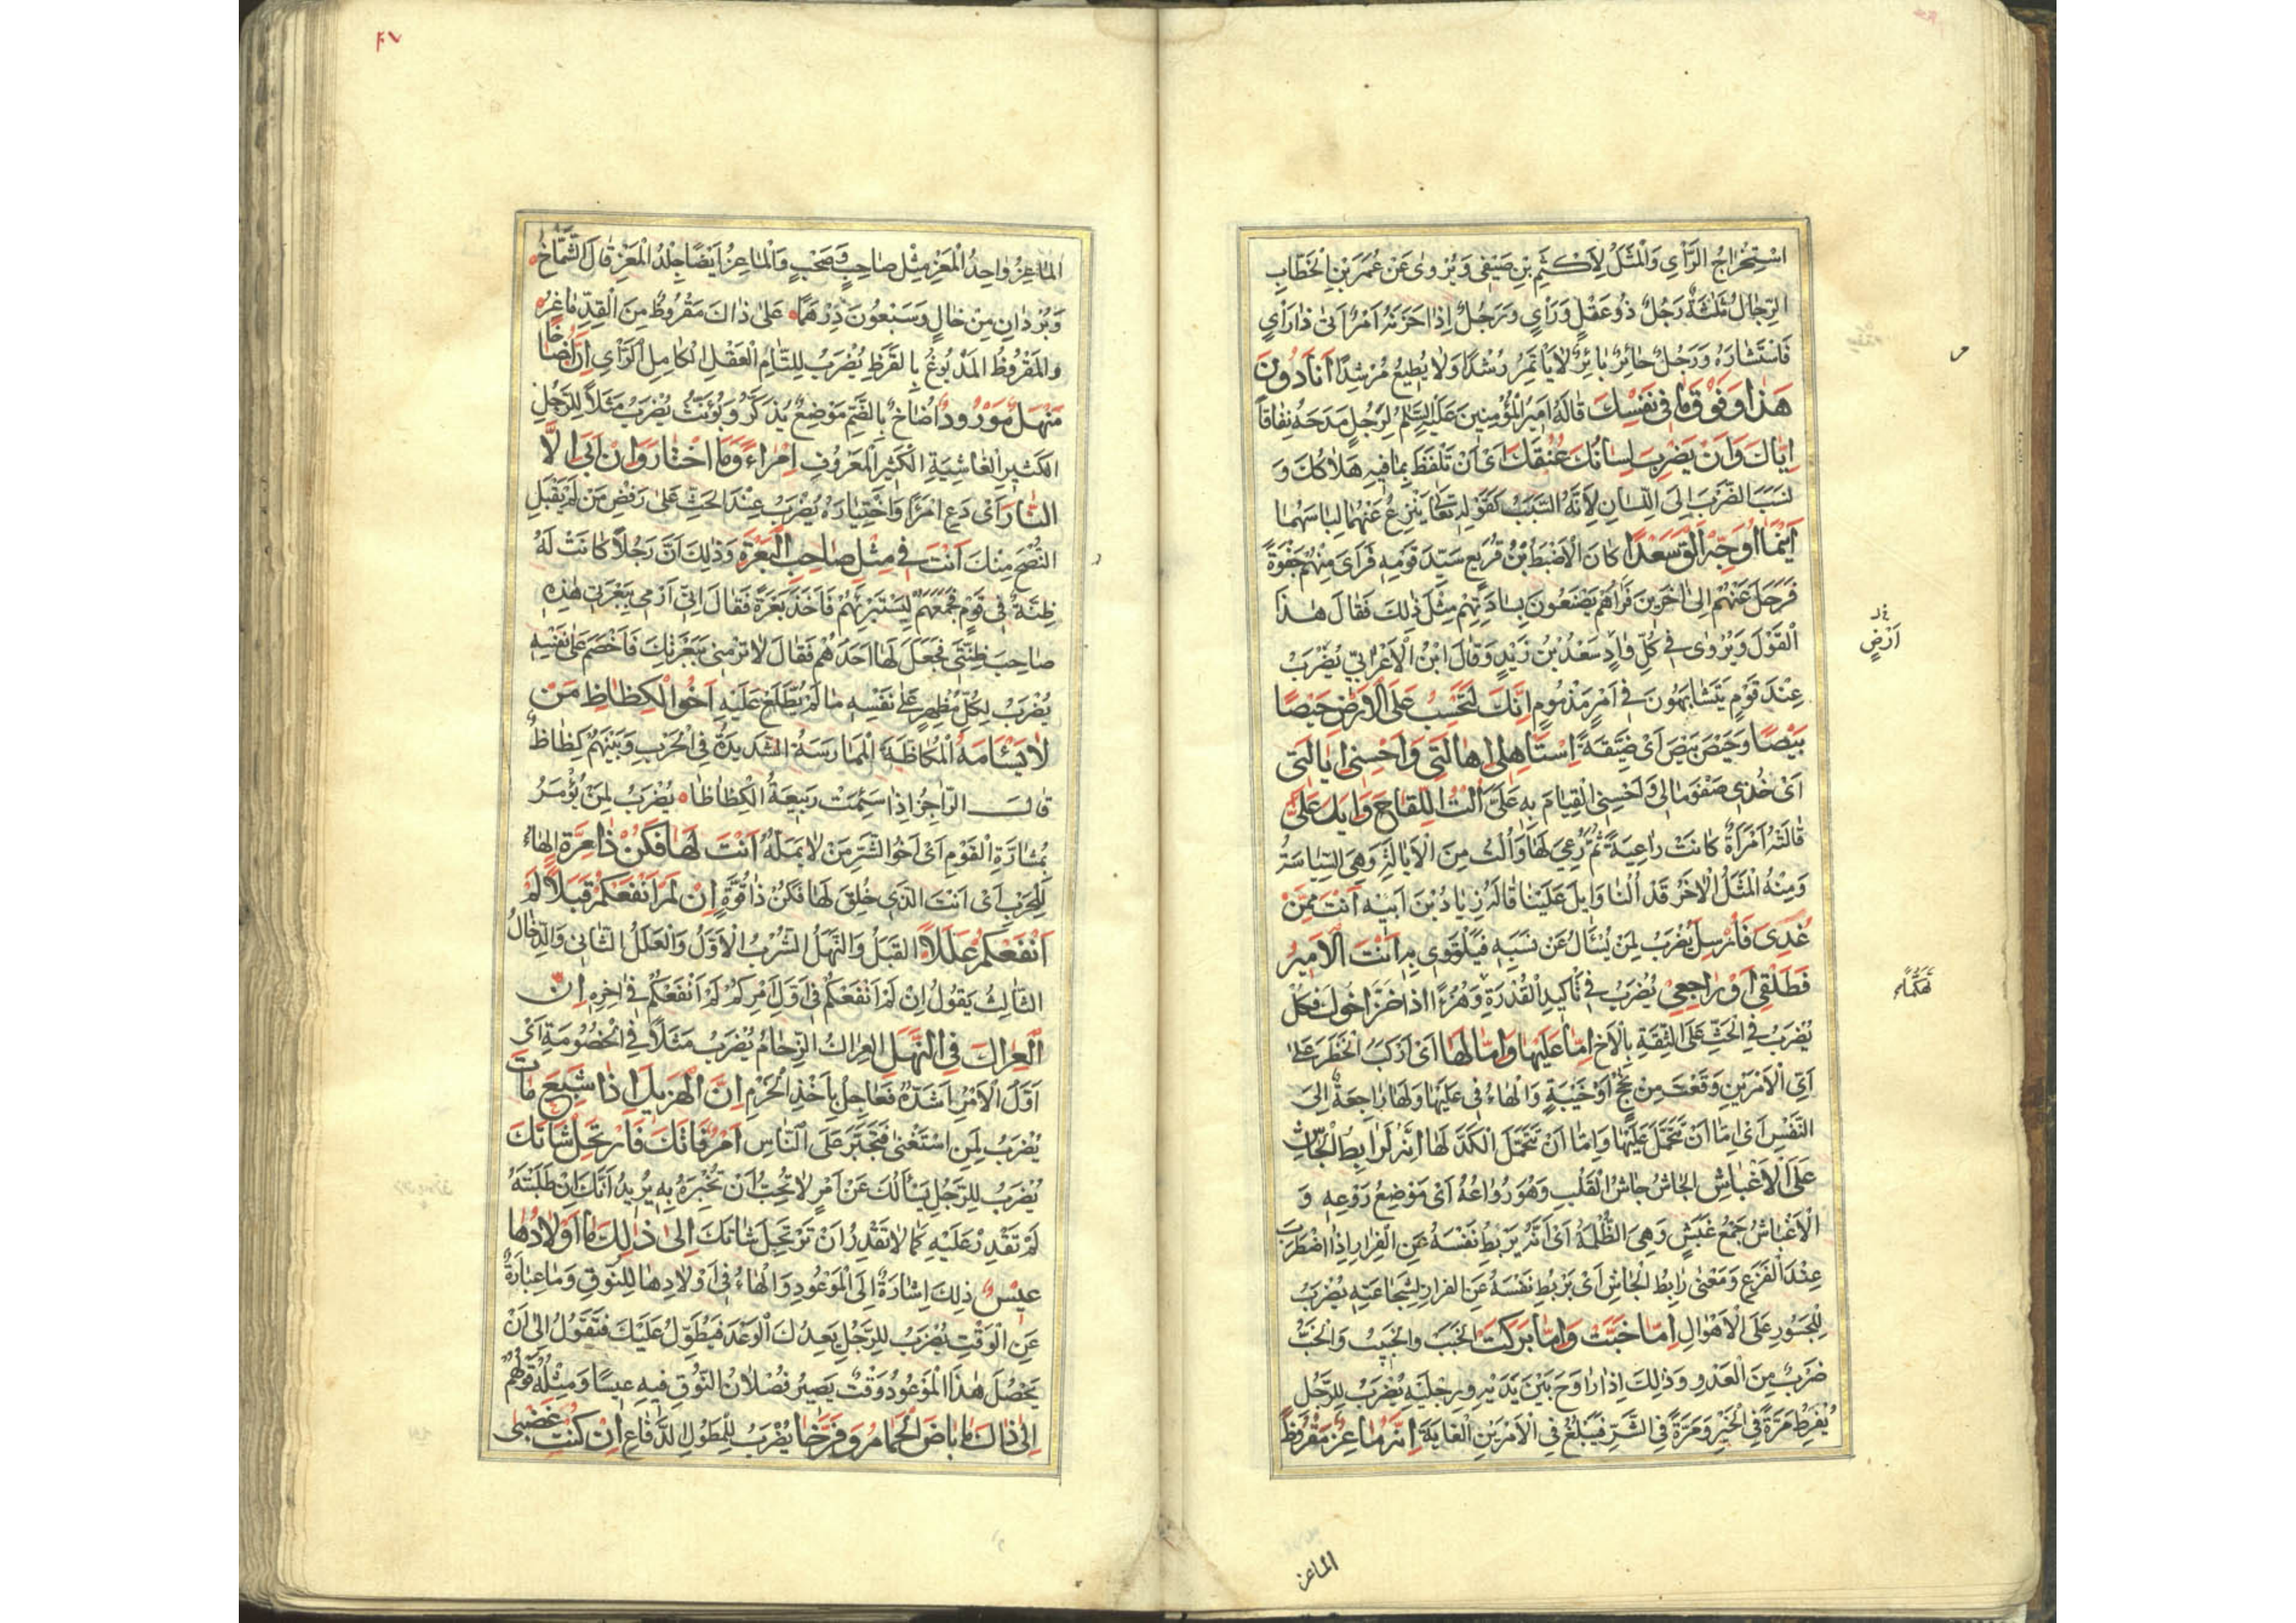 اسْتِخْرَاجُ الرَّأيِ وَالْمَثَلُ لِأَكْثَمِ بْنِ صَيْفِي وَيُرْوىٰ عَنْ عُمَرَ بْنِ الْخَطَّابِ
الرِّجَالُ ثَلٰثَةٌ رَجُلٌ ذُو عَقْلٍ وَرَأيٍ وَرَجُلٌ إِذَا حَزَنَهُ أَمْرٌ أَتىٰ ذَا رَأيٍ
فَاسْتَشَارَهُ وَرَجُلٌ حَائِرٌ بَائِرٌ لَا يَأْتَمِرُ رُشْدًا وَلَا يُطِيعُ مُرْشِدًا أَنَا دُونَ
هَذَا وَفَوْقَ مَا فِي نَفْسِكَ قَالَهُ أَمِيرُ الْمُؤْمِنِينَ عَلَيْهِ السَّلٰمُ لِرَجُلٍ مَدَحَهُ نِفَاقًا
إِيَّاكَ وَأَنْ يَضْرِبَ لِسَانُكَ عُنُقَكَ أَيْ أَنْ تَلْفَظَ بِمَا فِيهِ هَلَاكُكَ وَ
نَسَبَ الضَّرْبَ إِلَى اللِّسَانِ لِأَنَّهُ السَّبَبُ كَقَوْلِهِ تَعَا يَنْزِعُ عَنْهُمَا لِبَاسَهُمَا
أَيْنَمَا أُوَجِّهْ أَلْقَ سَعْدًا كَانَ الْأَضْبَطُ بْنُ قُرَيْعٍ سَيِّدَ قَوْمِهِ فَرَأَى مِنْهُمْ جَفْوَةً
فَرَحَلَ عَنْهُمْ إِلىٰ اٰخَرِينَ فَرَاٰهُمْ يَصْنَعُونَ بِسَادَتِهِمْ مِثْلَ ذٰلِكَ فَقَالَ هٰذَا
الْقَوْلَ وَيُرْوىٰ فِي كُلِّ وَادٍ سَعْدُ بْنُ زَيْدٍ وَقَالَ ابْنُ الْأَعْرَابِيِّ يُضْرَبُ
عِنْدَ قَوْمٍ يَتَشَابَهُونَ فِي أَمْرٍ مَذْمُومٍ إِنَّكَ لَتَحْسِبُ عَلَيَّ الْأَرْضَ حَيْصًا
بَيْصًا وَحَيْصَ بَيْصَ أَيْ ضَيِّقَةً اِسْتَأْهِلِي إِهَالَتِي وَأَحْسِنِي إِيَالَتِي
أَيْ خُذِي صَفْوَ مَالِي وَأَحْسِنِي الْقِيَامَ بِهِ عَلَيَّ أُلْتُ اللِّقَاحَ وَإِيلَ عَلَيَّ
قَالَتْهُ امْرَأَةٌ كَانَتْ رَاعِيَةً ثُمَّ رُعِيَ لَهَا وَأُلْتُ مِنَ الْإِيَالَةِ وَهِيَ السِّيَاسَةُ
وَمِنْهُ الْمَثَلُ الْاٰخَرُ قَدْ أُلْنَا وَإِيلَ عَلَيْنَا قَالَهُ زِيَادُ بْنُ أَبِيهِ أَنْتَ مِمَّنْ
غُذِيَ فَأُرْسِلَ يُضْرَبُ لِمَنْ يُسْأَلُ عَنْ نَسَبِهِ فَيَلْتَوِي بِهِ أَنْتَ الْأَمِيرُ
فَطَلِّقِي أَوْ رَاجِعِي يُضْرَبُ فِي تَأْكِيدِ الْقُدْرَةِ وَهُزُءًا إِذَا خَزَّ أَخُوكَ فَكُلْ
يُضْرَبُ فِي الْحَثِّ عَلَى الثِّقَةِ بِالْأَخِ إِمَّا عَلَيْهَا وَإِمَّا لَهَا أَيْ أَرْكَبُ الْخَطَرَ عَلىٰ
أَيِّ الْأَمْرَيْنِ وَقَعْتُ مِنْ نُجْحٍ أَوْ خَيْبَةٍ وَالْهَاءُ فِي عَلَيْهَا وَلَهَا رَاجِعَةٌ إِلَى
النَّفْسِ أَيْ إِمَّا أَنْ تَحْمِلَ عَلَيْهَا وَإِمَّا أَنْ تَتَحَمَّلَ الْكَدَّ لَهَا إِنَّهُ لَرَابِطُ الْجَاشِ
عَلَى الْأَغْبَاشِ الْجَاشُ جَاشُ الْقَلْبِ وَهُوَ رُوَاعُهُ أَيْ مَوْضِعُ رَوْعِهِ وَ
الْأَغْبَاشُ جَمْعُ غَبَشٍ وَهِيَ الظُّلْمَةُ أَيْ أَنَّهُ يَرْبِطُ نَفْسَهُ عَنِ الْفِرَارِ إِذَا اضْطَرَبَ
عِنْدَ الْفَزَعِ وَمَعْنىٰ رَابِطُ الْجَاشِ أَيْ يَرْبِطُ نَفْسَهُ عَنِ الْفِرَارِ لِشَجَاعَتِهِ يُضْرَبُ
لِلْجَسُورِ عَلَى الْأَهْوَالِ إِمَّا خَبَّتْ وَإِمَّا بَرَكَتْ الْخَبَبُ وَالْخَبِيبُ وَالْخَبُّ
ضَرْبٌ مِنَ الْعَدْوِ وَذٰلِكَ إِذَا رَاوَحَ بَيْنَ يَدَيْهِ وَرِجْلَيْهِ يُضْرَبُ لِلرَّجُلِ
يُفْرِطُ مَرَّةً فِي الْخَيْرِ وَمَرَّةً فِي الشَّرِّ فَيَبْلُغُ فِي الْأَمْرَيْنِ الْغَايَةَ إِنَّهُ مَاعِزٌ مَقْرُوظٌ
أَرْضٍ
تَهَكُّمًا
الماعز
٤٧
الْمَاعِزُ وَاحِدُ الْمَعْزِ مِثْلُ صَاحِبٍ وَصَحْبٍ وَالْمَاعِزُ أَيْضًا جِلْدُ الْمَعْزِ قَالَ الشَّمَّاخُ
وَبُرْدَانِ مِنْ خَالٍ وَسَبْعُونَ دِرْهَمًا عَلىٰ ذَاكَ مَقْرُوظٌ مِنَ الْقِدِّ مَاعِزُ
وَالْمَقْرُوظُ الْمَدْبُوغُ بِالْقَرَظِ يُضْرَبُ لِلتَّامِّ الْعَقْلِ الْكَامِلِ الرَّأيِ إِنَّ أُضَاخًا
مَنْهَلٌ مَوْرُودٌ أُضَاخٌ بِالضَّمِّ مَوْضِعٌ يُذَكَّرُ وَيُؤَنَّثُ يُضْرَبُ مَثَلًا لِلرَّجُلِ
الْكَثِيرِ الْغَاشِيَةِ الْكَثِيرِ الْمَعْرُوفِ اِمْرَاءً وَمَا اخْتَارَ وَإِنْ أَبىٰ إِلَّا
النَّارَ أَيْ دَعِ امْرَأً وَاخْتِيَارَهُ يُضْرَبُ عِنْدَ الْحَثِّ عَلىٰ رَفْضِ مَنْ لَمْ يَقْبَلِ
النُّصْحَ مِنْكَ أَنْتَ فِي مِثْلِ صَاحِبِ الْبَعْرَةِ وَذٰلِكَ أَنَّ رَجُلًا كَانَتْ لَهُ
ظِنَّةٌ فِي قَوْمٍ فَجَمَعَهُمْ لِيَسْتَبْرِئَهُمْ فَأَخَذَ بَعْرَةً فَقَالَ إِنِّي أَرْمِي بِبَعْرَتِي هٰذِهِ
صَاحِبَ ظِنَّتِي فَجَفَلَ لَهَا أَحَدُهُمْ فَقَالَ لَا تَرْمِنِي بِبَعْرَتِكَ فَأَخْصَمَ عَلىٰ نَفْسِهِ
يُضْرَبُ لِكُلِّ مُظْهِرٍ عَلىٰ نَفْسِهِ مَا لَمْ يُطَّلَعْ عَلَيْهِ أَخُو الْكِظَاظِ مَنْ
لَا يَسْأَمُهُ الْمُكَاظَّةُ الْمُمَارَسَةُ الشَّدِيدَةُ فِي الْحَرْبِ وَبَيْنَهُمْ كِظَاظٌ
قَالَ الرَّاجِزُ إِذَا سَئِمَتْ رَبِيعَةُ الْكِظَاظَا يُضْرَبُ لِمَنْ يُؤْمَرُ
بِمُشَارَّةِ الْقَوْمِ أَيْ أَخُو الشَّرِّ مَنْ لَا يَمَلُّهُ أَنْتَ لَهَا فَكُنْ ذَا مِرَّةٍ الْهَاءُ
لِلْحَرْبِ أَيْ أَنْتَ الَّذِي خُلِقَ لَهَا فَكُنْ ذَا قُوَّةٍ إِنْ لَمْ أَنْفَعْكُمْ قَبَلًا لَمْ
أَنْفَعْكُمْ عَلَلًا الْقَبَلُ وَالنَّهَلُ الشُّرْبُ الْأَوَّلُ وَالْعَلَلُ الثَّانِي وَالدِّخَالُ
الثَّالِثُ يَقُولُ إِنْ لَمْ أَنْفَعْكُمْ فِي أَوَّلِ أَمْرِكُمْ لَمْ أَنْفَعْكُمْ فِي اٰخِرِهِ إِنَّ
الْعِرَاكَ فِي النَّهَلِ الْعِرَاكُ الزِّحَامُ يُضْرَبُ مَثَلًا فِي الْخُصُومَةِ أَيْ
أَوَّلُ الْأَمْرِ أَشَدُّهُ فَعَاجِلْ بِأَخْذِ الْحَزْمِ إِنَّ الْهَزِيلَ إِذَا شَبِعَ مَاتَ
يُضْرَبُ لِمَنِ اسْتَغْنىٰ فَتَجَبَّرَ عَلَى النَّاسِ أَمْرٌ فَاتَكَ فَارْتَحِلْ شَاتَكَ
يُضْرَبُ لِلرَّجُلِ يَسْأَلُكَ عَنْ أَمْرٍ لَا تُحِبُّ أَنْ تُخْبِرَهُ بِهِ يُرِيدُ أَنَّكَ إِنْ طَلَبْتَهُ
لَمْ تَقْدِرْ عَلَيْهِ كَمَا لَا تَقْدِرُ أَنْ تَرْتَحِلَ شَاتَكَ إِلىٰ ذٰلِكَ مَا أَوْلَادُهَا
عِيسٌ ذٰلِكَ إِشَارَةٌ إِلَى الْمَوْعُودِ وَالْهَاءُ فِي أَوْلَادِهَا لِلنُّوقِ وَمَا عِبَارَةٌ
عَنِ الْوَقْتِ يُضْرَبُ لِلرَّجُلِ يَعِدُكَ الْوَعْدَ فَيُطَوِّلُ عَلَيْكَ فَتَقُولُ إِلىٰ أَنْ
يَحْصُلَ هٰذَا الْمَوْعُودُ وَقْتٌ يَصِيرُ فُصْلَانُ النُّوقِ فِيهِ عِيسًا وَمِثْلُهُ قَوْلُهُمْ
إِلىٰ ذَاكَ مَا بَاضَ الْحَمَامُ وَفَرَّخَا يُضْرَبُ لِلْمَطُولِ الدَّفَّاعِ إِنْ كُنْتِ غَضْبىٰ